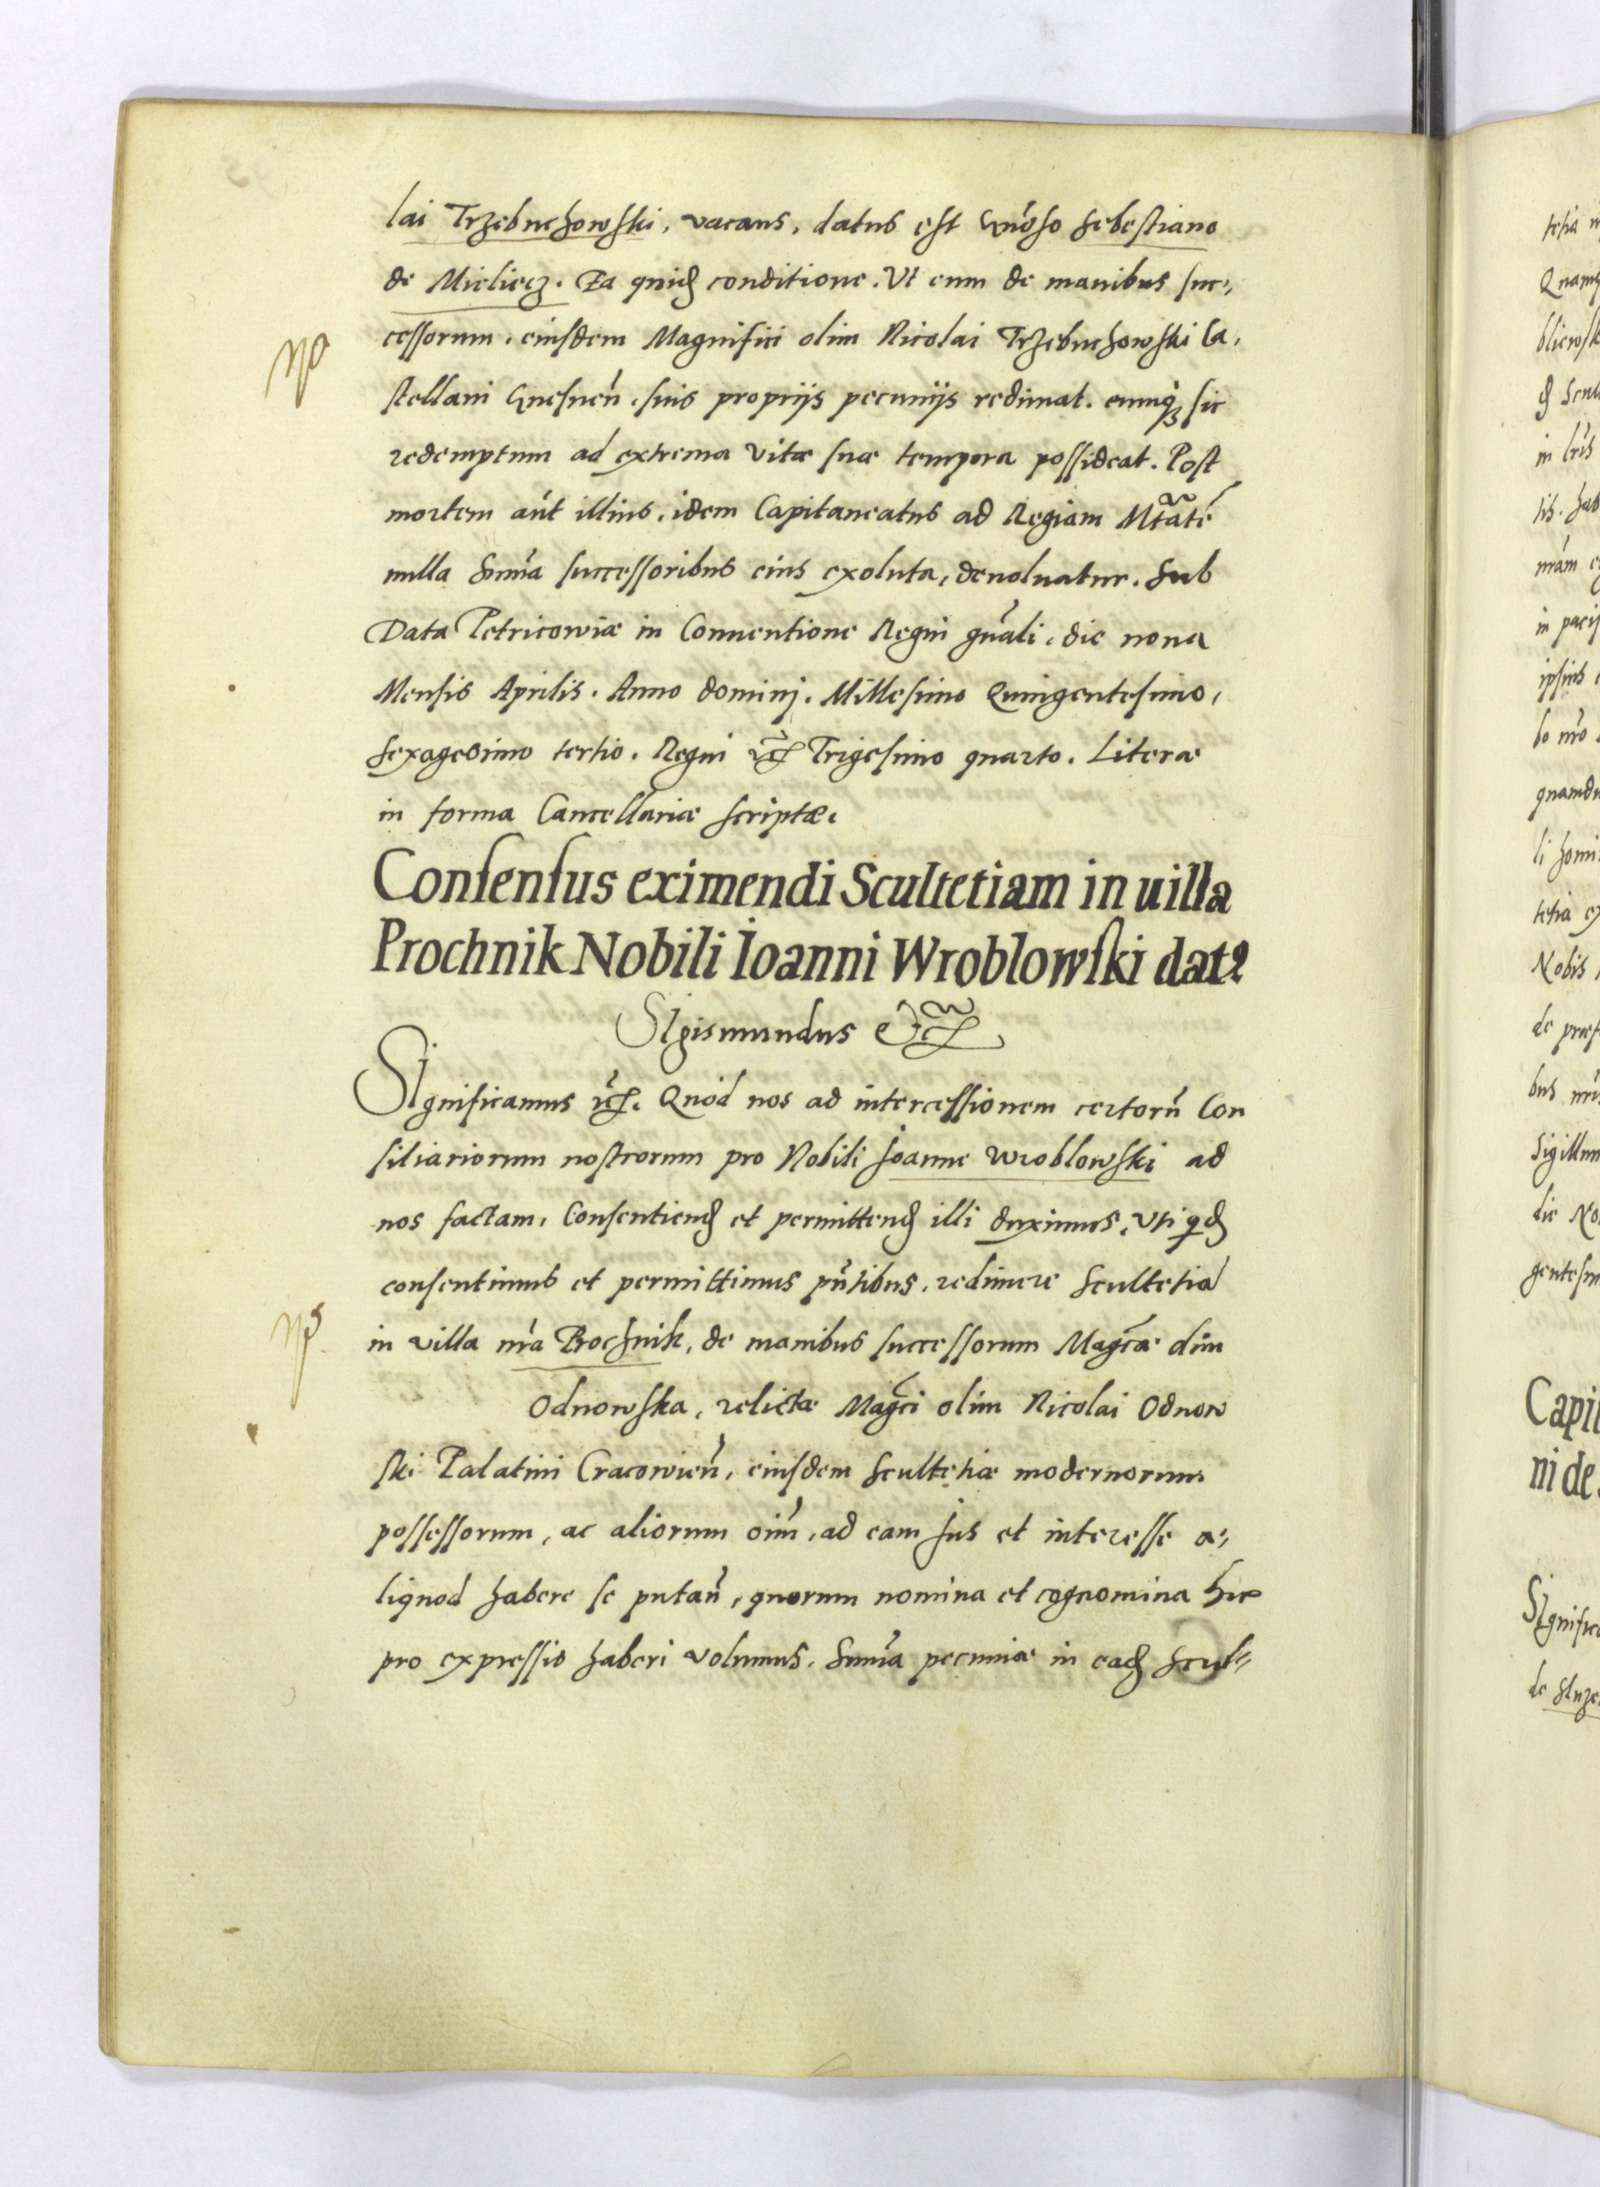 lai Trzebuchowski, vacans, datus est Gnöso Sebestiano
de Mieliecz. Ea quid conditione. Ut eum de manibus suc,
cessorum, eiusdem Magnifici olim Nicolai Trzebuchowski Ca,
stellani Gnesnen̄, suis proprijs pecunijs redimat. eumq; sic
redemptum ad extrema vitæ suæ tempora possideat. Post
mortem aūt illius, idem Capitaneatus ad Regiam Mtatē
nulla Sum̄a successoribus eius exoluta, devoluatur. Sub
Data Petricowiæ in Conuentione Regni gn̄ali, die nona
Mensis Aprilis. Anno dominj. Millesimo Quingentesimo,
Sexagesimo tertio. Regni Trigesimo quarto. Literæ
in forma Cancellariæ scriptæ.
Consensus eximendi Scultetiam in uilla
Prochnik Nobili Ioanni Wroblowski dat2
SIgismundus Etc̄
SIgnificamus etc̄. Quod nos ad intercessionem certorū Con
siliariorum nostrorum pro Nobili Joanne Wroblowski ad
nos factam, Consentiend et permittend illi duximus, Uti qd
consentimus et permittimus pn̄tibus, redimere Scultetiā
in villa nr̄a Prochnik, de manibus successorum Magcæ olim
Odnowska, relictæ Magci olim Nicolai Odnow
ski Palatini Cracowien̄, eiusdem Scultetiæ modernorum
possessorum, ac aliorum oīm, ad eam Jus et interesse a,
liquod habere se putan̄, quorum nomina et cognomina hic
pro expressis haberi volumus. Sum̄a pecuniæ in ead Scul=
tetia
Quamq
bliewsk
in lr̄is
tis. hab
nr̄am
in paci
ipsius
quamdi
li homi
tetia ex
Nobis
de præf
bus nr̄i
Sigillum
die No
gentesim
Capit
ni de
SIgnific
de Sluze